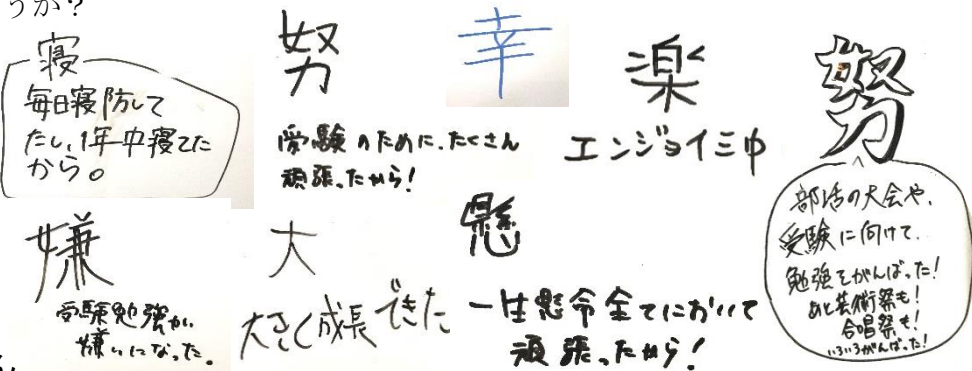 うか？
寝
毎日寝防して
たし、1年中寝てた
から。
努
受験のために、たくさん
頑張ったから！
幸
楽
エンジョイ三中
努
部活の大会や、
受験に向けて、
勉強をがんばった！
あと芸術祭も！
合唱祭も！
いろいろがんばった！
嫌
受験勉強が、
嫌いになった。
大
大きく成長できた
懸
一生懸命全てにおいて
頑張ったから！